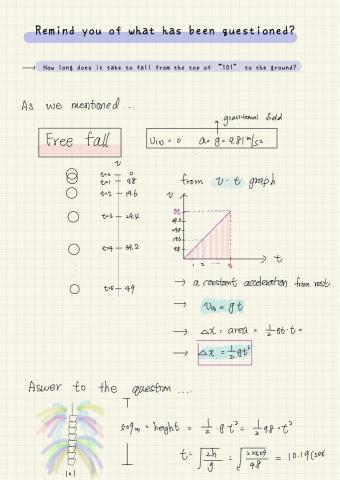 Remind you of what has been questioned?
→ How long does it take to fall from the top of "101" to the ground?
As we mentioned...
gravitational field
Free fall
V(0) = 0 a = g = 9.81 m/s²
v
t=0 0
t=1 9.8
t=2 19.6
t=3 29.4
t=4 39.2
t=5 49
from v - t graph
v
t
1 2
→ a constant acceleration from rest.
→ V(t) = gt
→ △x = area = ½ gt · t =
→ △x = ½ gt²
Aswer to the question ....
509m = height = ½ · g t² = ½ 9.8 · t²
t = √(2h/g) = √(2×509/9.8) = 10.19(sec
101